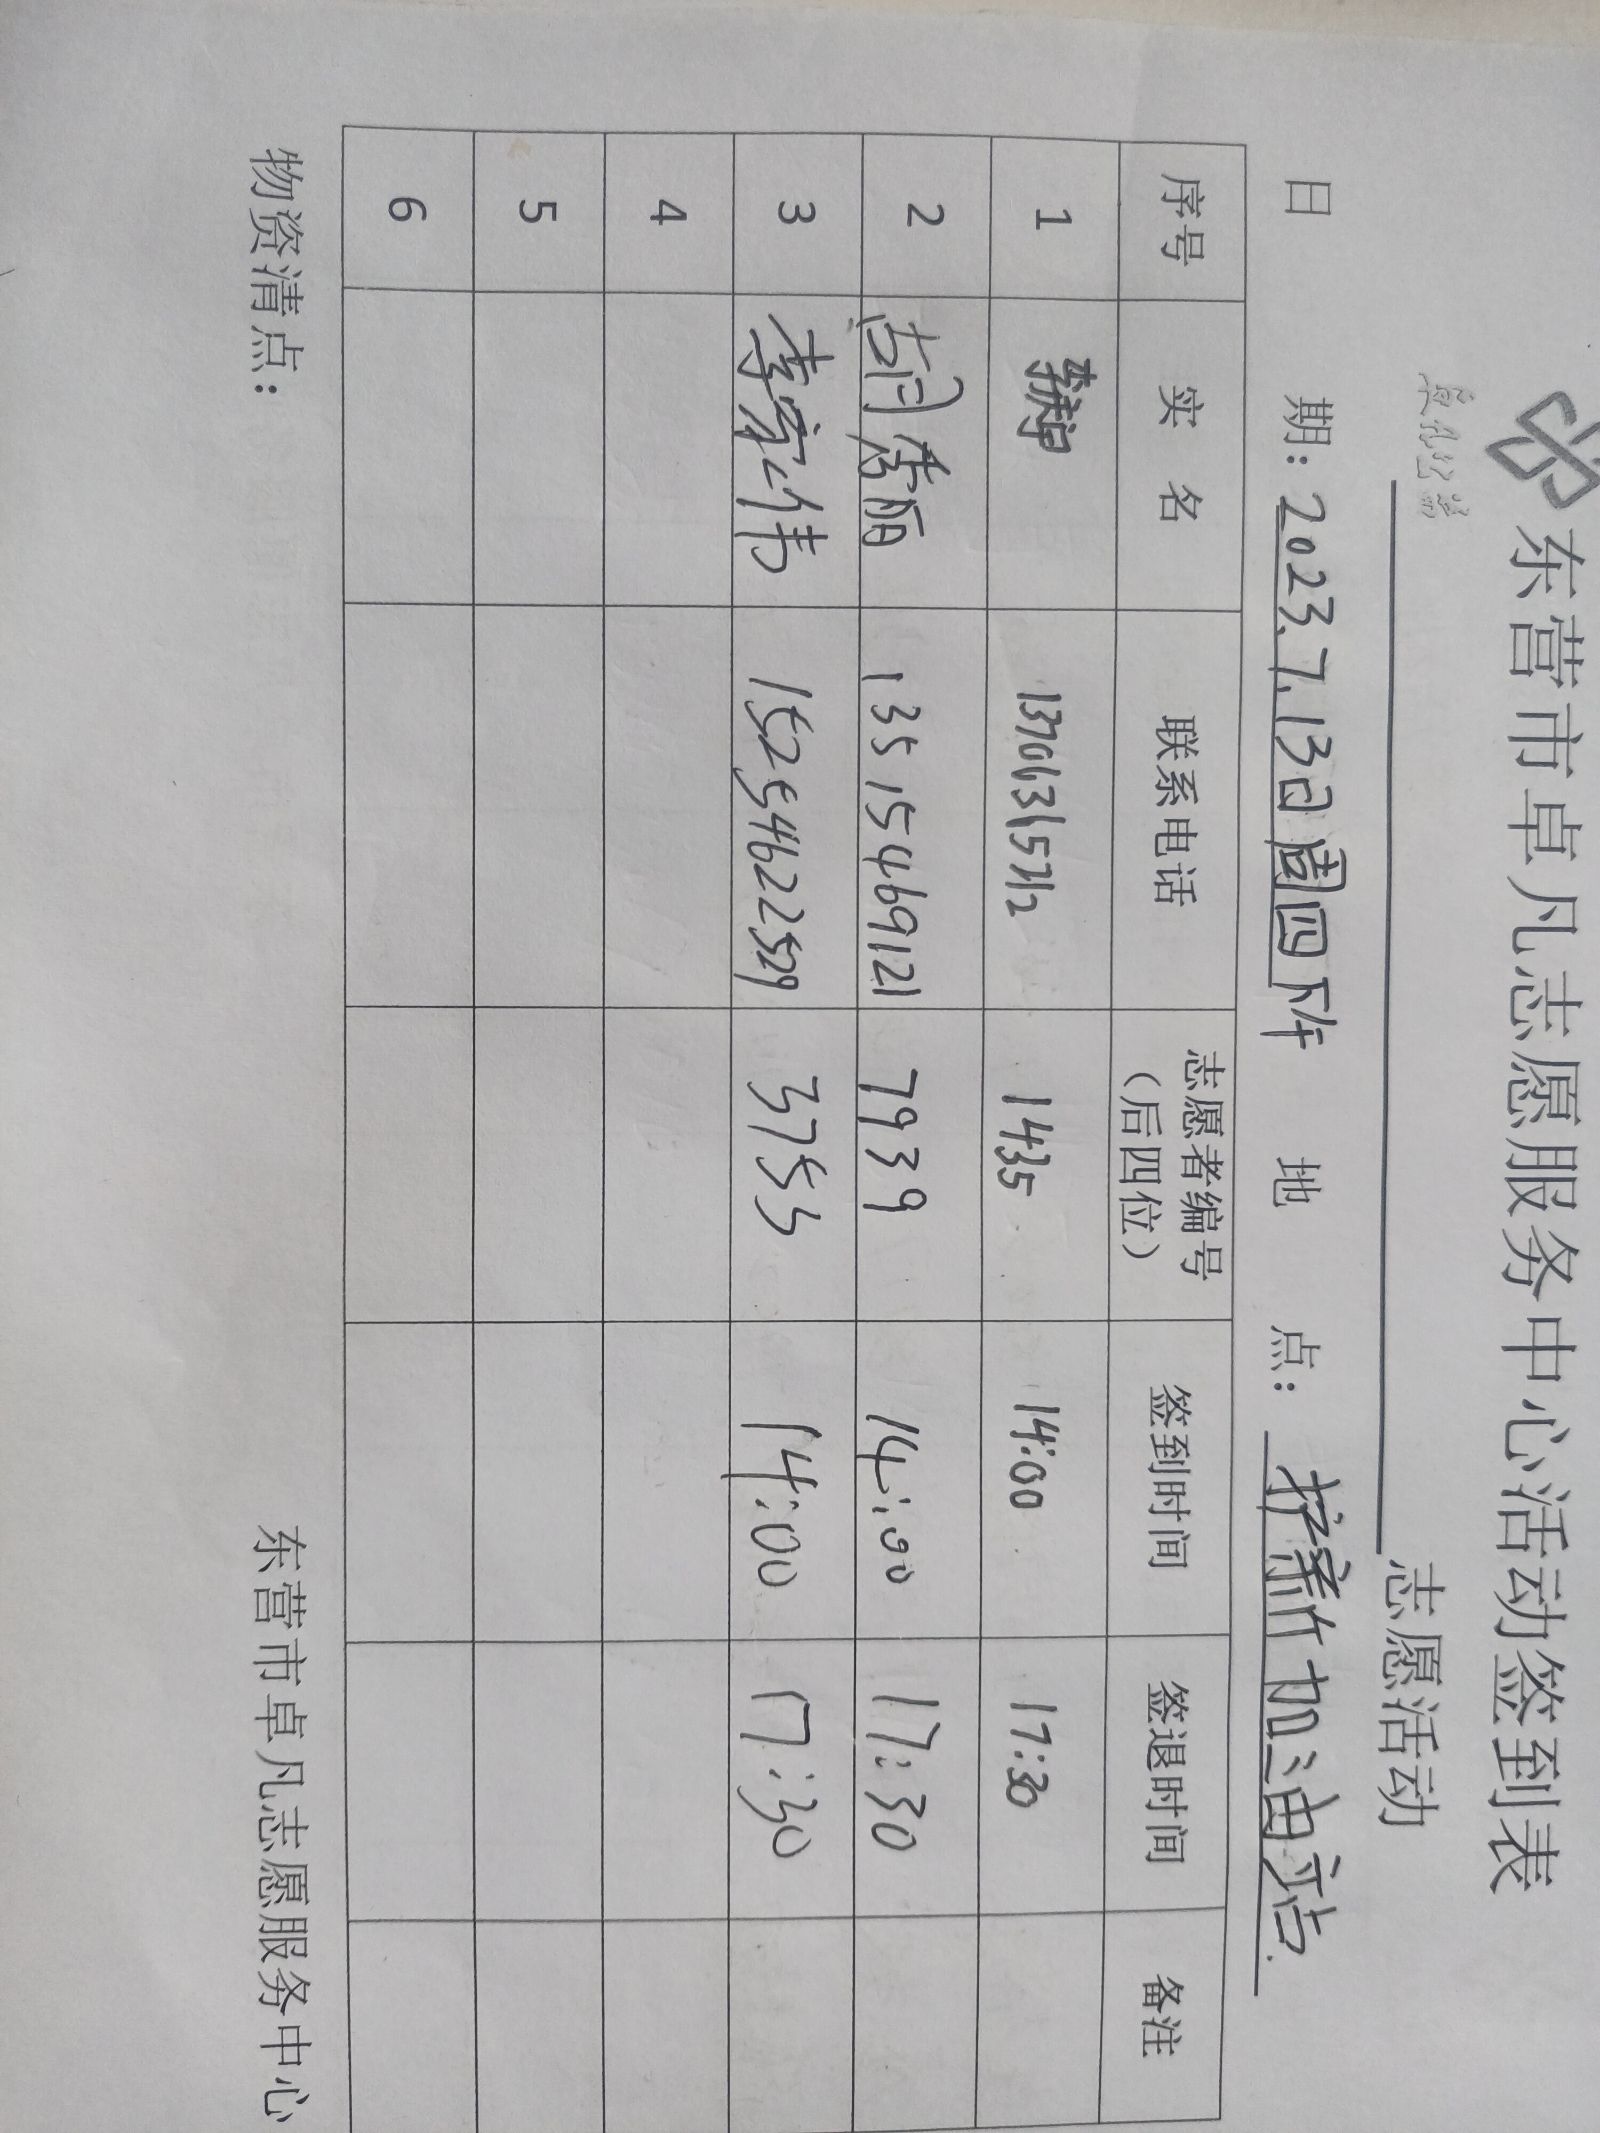 卓凡公益
东营市卓凡志愿服务中心活动签到表
志愿活动
日 期: 2023.7.13日周四下午 地 点: 护新加油站
序号 实 名 联系电话 志愿者编号（后四位） 签到时间 签退时间 备注
1 13706315712 1435 14:00 17:30
2 秀丽 13515469121 7939 14:00 17:30
3 李家伟 15254622529 3753 14:00 17:30
4
5
6
物资清点：
东营市卓凡志愿服务中心